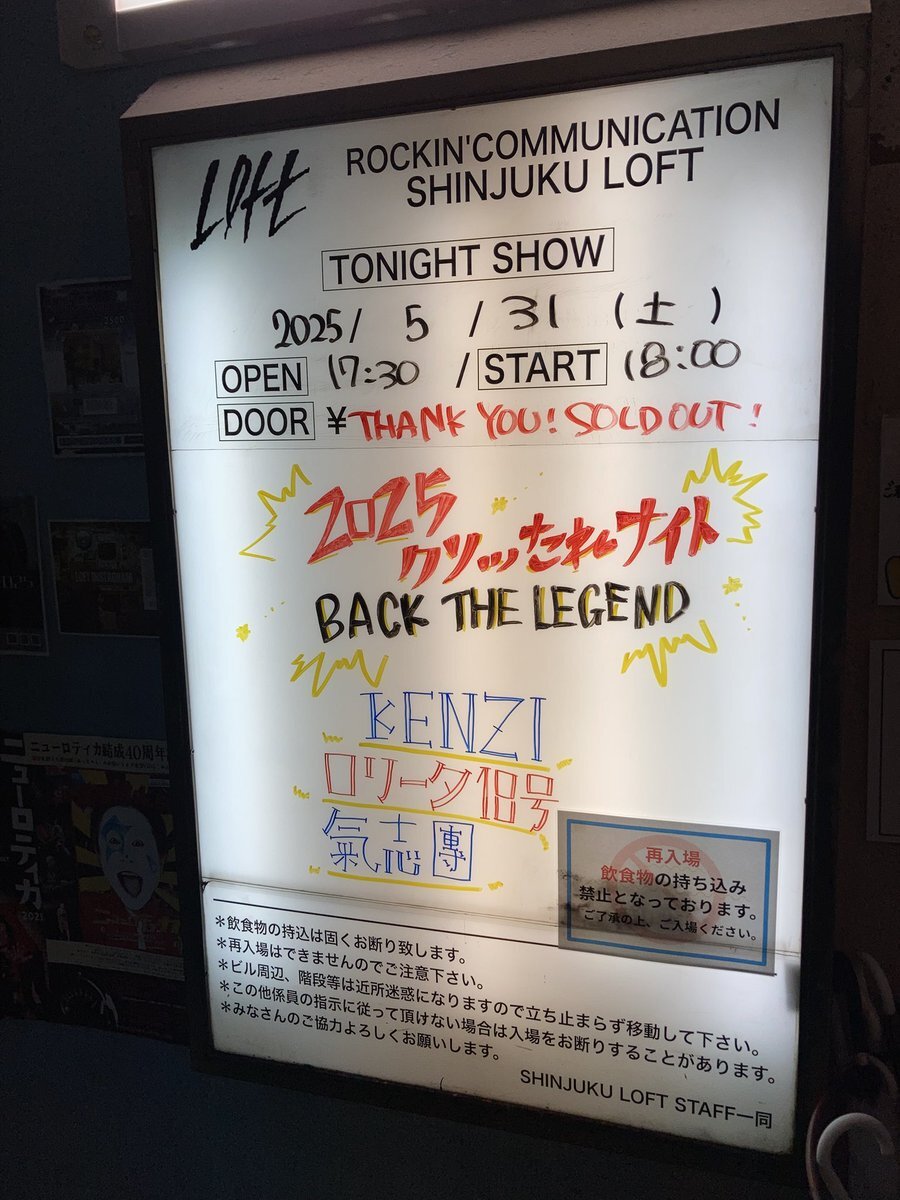 LOFT
ROCKIN'COMMUNICATION
SHINJUKU LOFT
TONIGHT SHOW
2025/ 5 /31 (土)
OPEN 17:30 / START 18:00
DOOR ¥THANK YOU! SOLD OUT!
2025
クソッたれナイト
BACK THE LEGEND
KENZI
ロリータ18号
氣志團
再入場
飲食物の持ち込み
禁止となっております。
ご了承の上、ご入場ください。
*飲食物の持込は固くお断り致します。
*再入場はできませんのでご注意下さい。
*ビル周辺、階段等は近所迷惑になりますので立ち止まらず移動して下さい。
*この他係員の指示に従って頂けない場合は入場をお断りすることがあります。
*みなさんのご協力よろしくお願いします。
SHINJUKU LOFT STAFF一同
ニューロティカ結成40周年
ニューロティカ
2021